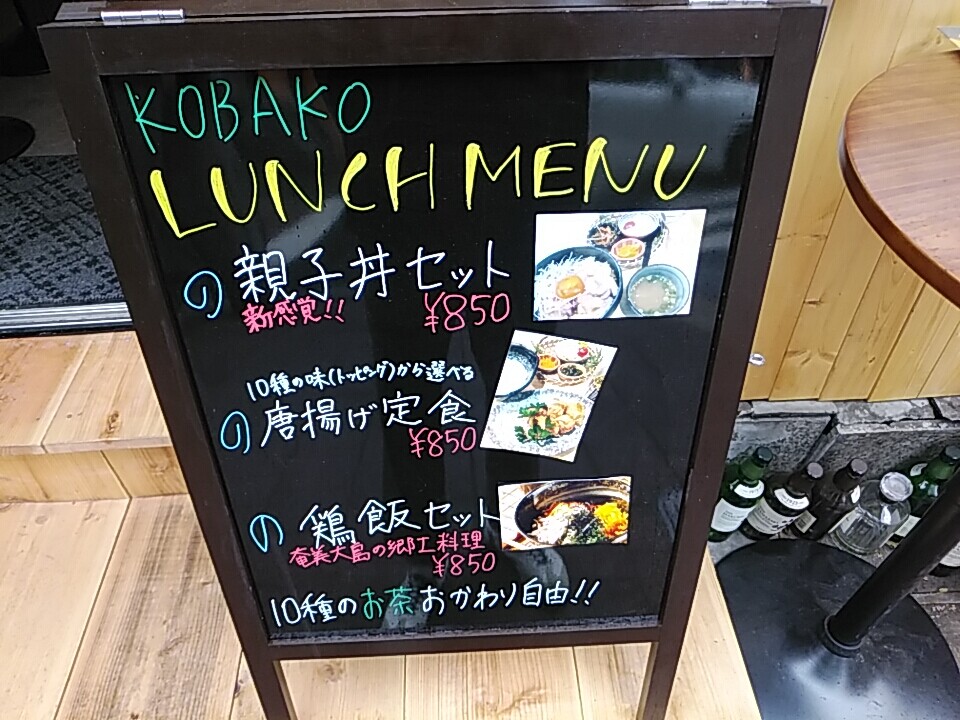 KOBAKO
LUNCH MENU
の 親子丼セット
新感覚!! ¥850
10種の味(トッピング)から選べる
の 唐揚げ定食
¥850
の 鶏飯セット
奄美大島の郷工料理
¥850
10種のお茶おかわり自由!!